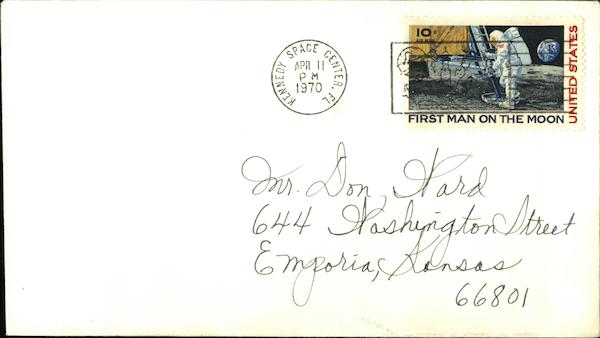 KENNEDY SPACE CENTER, FL
APR 11
PM
1970
10¢
UNITED STATES
FIRST MAN ON THE MOON
Mr. Don Ward
644 Washington Street
Emporia, Kansas
66801